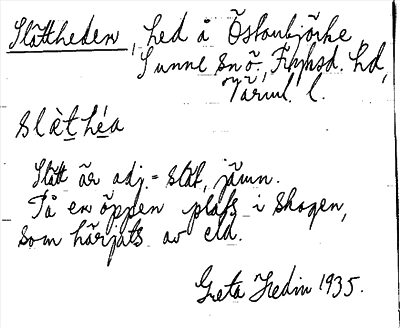 Slättheden, hed å Östanbjörke,
Sunne sn ö, Fryksd. hd,
Värml. l.
slàthéa
Slätt är adj. = slät, jämn.
På en öppen plats i skogen,
som härjats av eld.
Greta Hedin 1935.